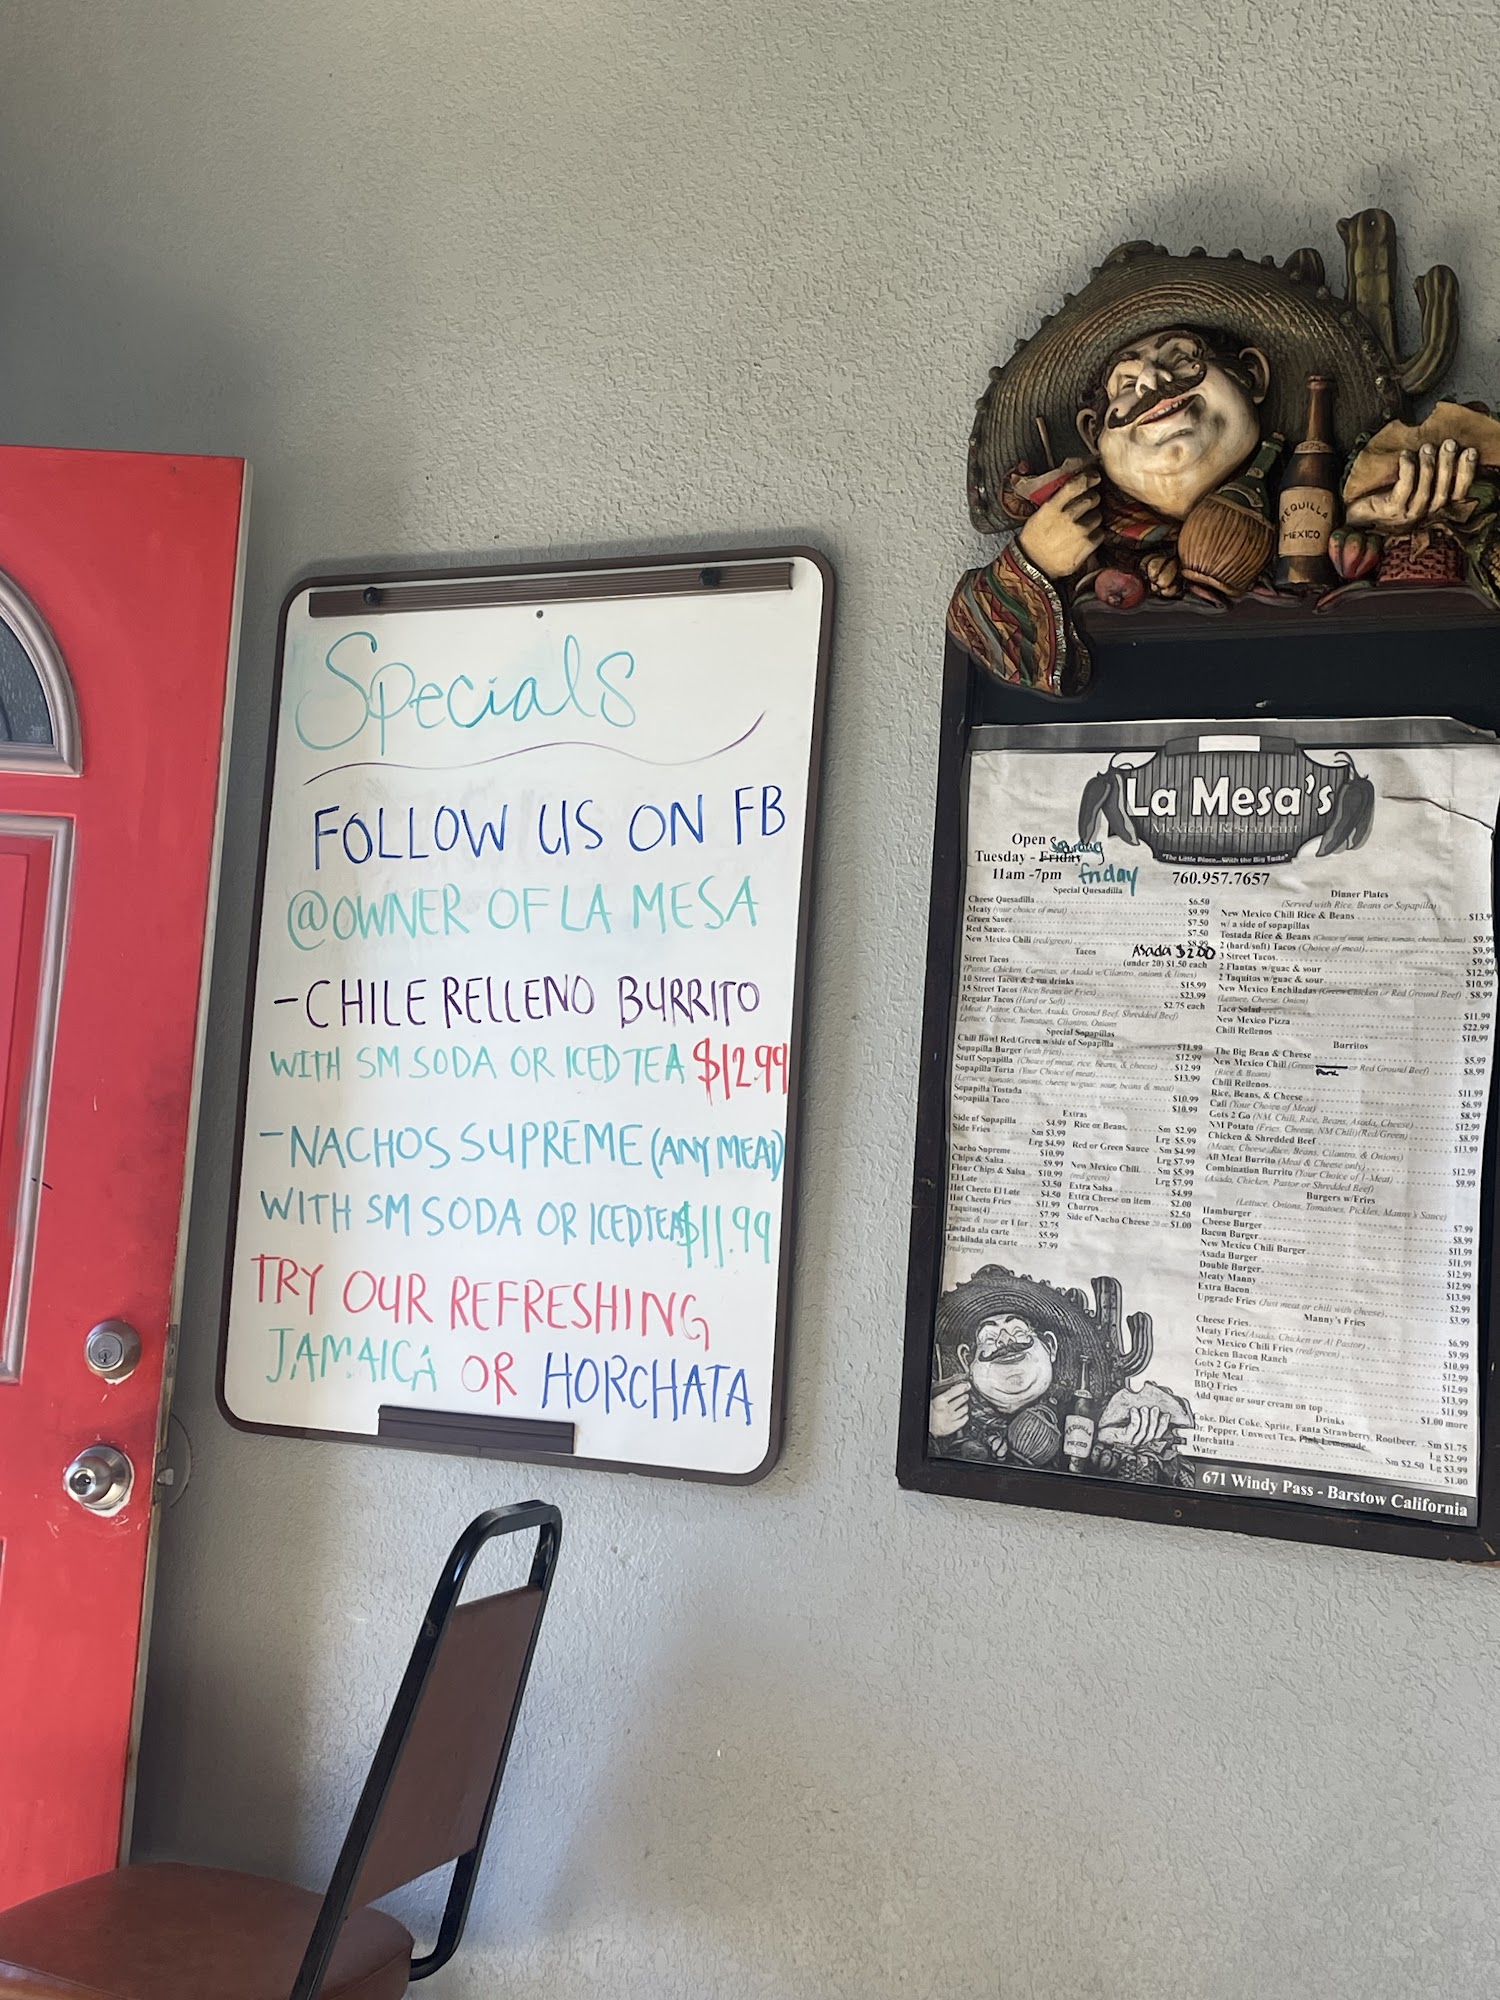 Specials
FOLLOW US ON FB
@OWNER OF LA MESA
-CHILE RELLENO BURRITO
WITH SM SODA OR ICED TEA $12.99
-NACHOS SUPREME (ANY MEAT)
WITH SM SODA OR ICED TEA $11.99
TRY OUR REFRESHING
JAMAICA OR HORCHATA
TEQUILLA
MEXICO
La Mesa's
Mexican Restaurant
"The Little Place...With the Big Taste"
Open Saturday
Tuesday - Friday
11am -7pm friday
760.957.7657
Special Quesadilla
Cheese Quesadilla $6.50
Meaty (your choice of meat) $9.99
Green Sauce $7.50
Red Sauce $7.50
New Mexico Chili (red/green) $8.99
Tacos Asada $2.00
Street Tacos (under 20) $1.50 each
(Pastor, Chicken, Carnitas, or Asada w/Cilantro, onions & limes)
10 Street Tacos & 2 sm drinks $15.99
15 Street Tacos (Rice/Beans or Fries) $23.99
Regular Tacos (Hard or Soft) $2.75 each
(Meat: Pastor, Chicken, Asada, Ground Beef, Shredded Beef)
Lettuce, Cheese, Tomatoes, Cilantro, Onions
Special Sopapillas
Chili Bowl Red/Green w/side of Sopapilla $11.99
Sopapilla Burger (with fries) $12.99
Stuff Sopapilla (Choice of meat, rice, beans, & cheese) $12.99
Sopapilla Torta (Your Choice of meat) $13.99
(Lettuce, tomato, onions, cheese w/guac, sour, beans & meat)
Sopapilla Tostada $10.99
Sopapilla Taco $10.99
Extras
Side of Sopapilla $4.99
Side Fries Sm $3.99
Lrg $4.99
Nacho Supreme $10.99
Chips & Salsa $9.99
Flour Chips & Salsa $10.99
El Lote $3.50
Hot Cheeto El Lote $4.50
Hot Cheeto Fries $11.99
Taquitos(4) $7.99
w/guac & sour or 1 for $2.75
Tostada ala carte $5.99
Enchilada ala carte $7.99
(red/green)
Rice or Beans Sm $2.99
Lrg $5.99
Red or Green Sauce Sm $4.99
Lrg $7.99
New Mexico Chili Sm $5.99
(red/green) Lrg $7.99
Extra Salsa $4.99
Extra Cheese on Item $2.00
Churros $2.50
Side of Nacho Cheese $1.00
Dinner Plates
(Served with Rice, Beans or Sopapilla)
New Mexico Chili Rice & Beans $13.9
w/ a side of sopapillas
Tostada Rice & Beans (Choice of meat, lettuce, tomato, cheese, beans) $9.99
2 (hard/soft) Tacos (Choice of meat) $9.99
3 Street Tacos $9.99
2 Flautas w/guac & sour $12.99
2 Taquitos w/guac & sour $10.99
New Mexico Enchiladas (Green Chicken or Red Ground Beef) $8.99
(Lettuce, Cheese, Onion)
Taco Salad $11.99
New Mexico Pizza $22.99
Chili Rellenos $10.99
Burritos
The Big Bean & Cheese $5.99
New Mexico Chili (Green Pork or Red Ground Beef) $8.99
(Rice & Beans)
Chili Rellenos $11.99
Rice, Beans, & Cheese $6.99
Cali (Your Choice of Meat) $8.99
Gots 2 Go (NM. Chili, Rice, Beans, Asada, Cheese) $12.99
NM Potato (Fries, Cheese, NM Chili)(Red/Green) $8.99
Chicken & Shredded Beef $13.99
(Meats, Cheese, Rice, Beans, Cilantro, & Onions)
All Meat Burrito (Meat & Cheese only) $12.99
Combination Burrito (Your Choice of 1-Meat) $9.99
(Asada, Chicken, Pastor or Shredded Beef)
Burgers w/Fries
(Lettuce, Onions, Tomatoes, Pickles, Manny's Sauce)
Hamburger $7.99
Cheese Burger $8.99
Bacon Burger $11.99
New Mexico Chili Burger $11.99
Asada Burger $12.99
Double Burger $12.99
Meaty Manny $13.99
Extra Bacon $2.99
Upgrade Fries (Just meat or chili with cheese) $3.99
Manny's Fries
Cheese Fries $6.99
Meaty Fries (Asada, Chicken or Al Pastor) $9.99
New Mexico Chili Fries (red/green) $10.99
Chicken Bacon Ranch $12.99
Gots 2 Go Fries $12.99
Triple Meat $13.99
BBQ Fries $11.99
Add guac or sour cream on top $1.00 more
Drinks
Coke, Diet Coke, Sprite, Fanta Strawberry, Rootbeer, Sm $1.75
Dr. Pepper, Unsweet Tea, Pink Lemonade Lg $2.99
Horchatta Sm $2.50 Lg $3.99
Water $1.00
TEQUILLA
MEXICO
671 Windy Pass - Barstow California